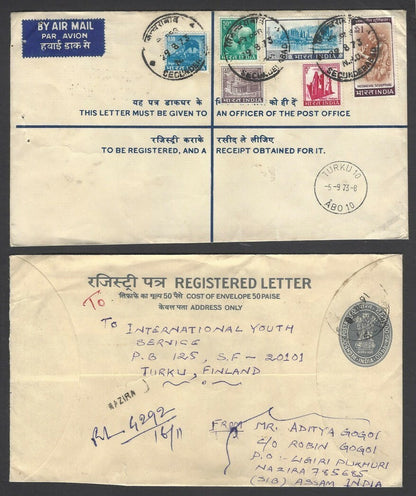 BY AIR MAIL
PAR AVION
हवाई डाक से
SECUNDERABAD
28.8.73
भारत INDIA
भारत INDIA
भारत INDIA
भारत INDIA
यह पत्र डाकघर के को ही दें
THIS LETTER MUST BE GIVEN TO AN OFFICER OF THE POST OFFICE
रजिस्ट्री कराके रसीद ले लीजिए
TO BE REGISTERED, AND A RECEIPT OBTAINED FOR IT.
TURKU 10
-5-9 73-8
ÅBO 10
रजिस्ट्री पत्र REGISTERED LETTER
लिफ़ाफ़े का मूल्य 50 पैसे COST OF ENVELOPE 50 PAISE
केवल पता ADDRESS ONLY
To
To INTERNATIONAL YOUTH
SERVICE
P.B 125, S.F - 20101
TURKU, FINLAND
NAZIRA
RL 4292
16/11
FROM MR. ADITYA GOGOI
C/O ROBIN GOGOI
P.O - LIGIRI PUKHURI
NAZIRA 785685
(SIB) ASSAM INDIA